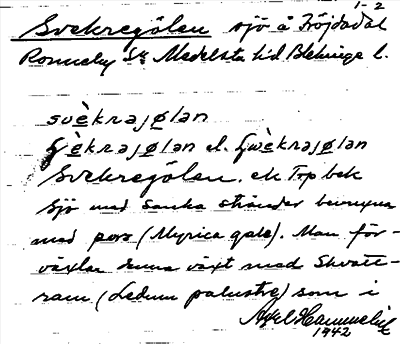 1-2
Svekregölen sjö å Fröjdadal
Ronneby Sn Medelsta hd Blekinge l.
svèkrəjølən
èkrəjølən el. wèkrəjølən
Svekregölen. ek Top bek
Sjö med sanka stränder bevuxna
med pors (Myrica gale). Man för-
växlar denna växt med Skvatt-
ram (Ledum palustre) som i
Axel
1942